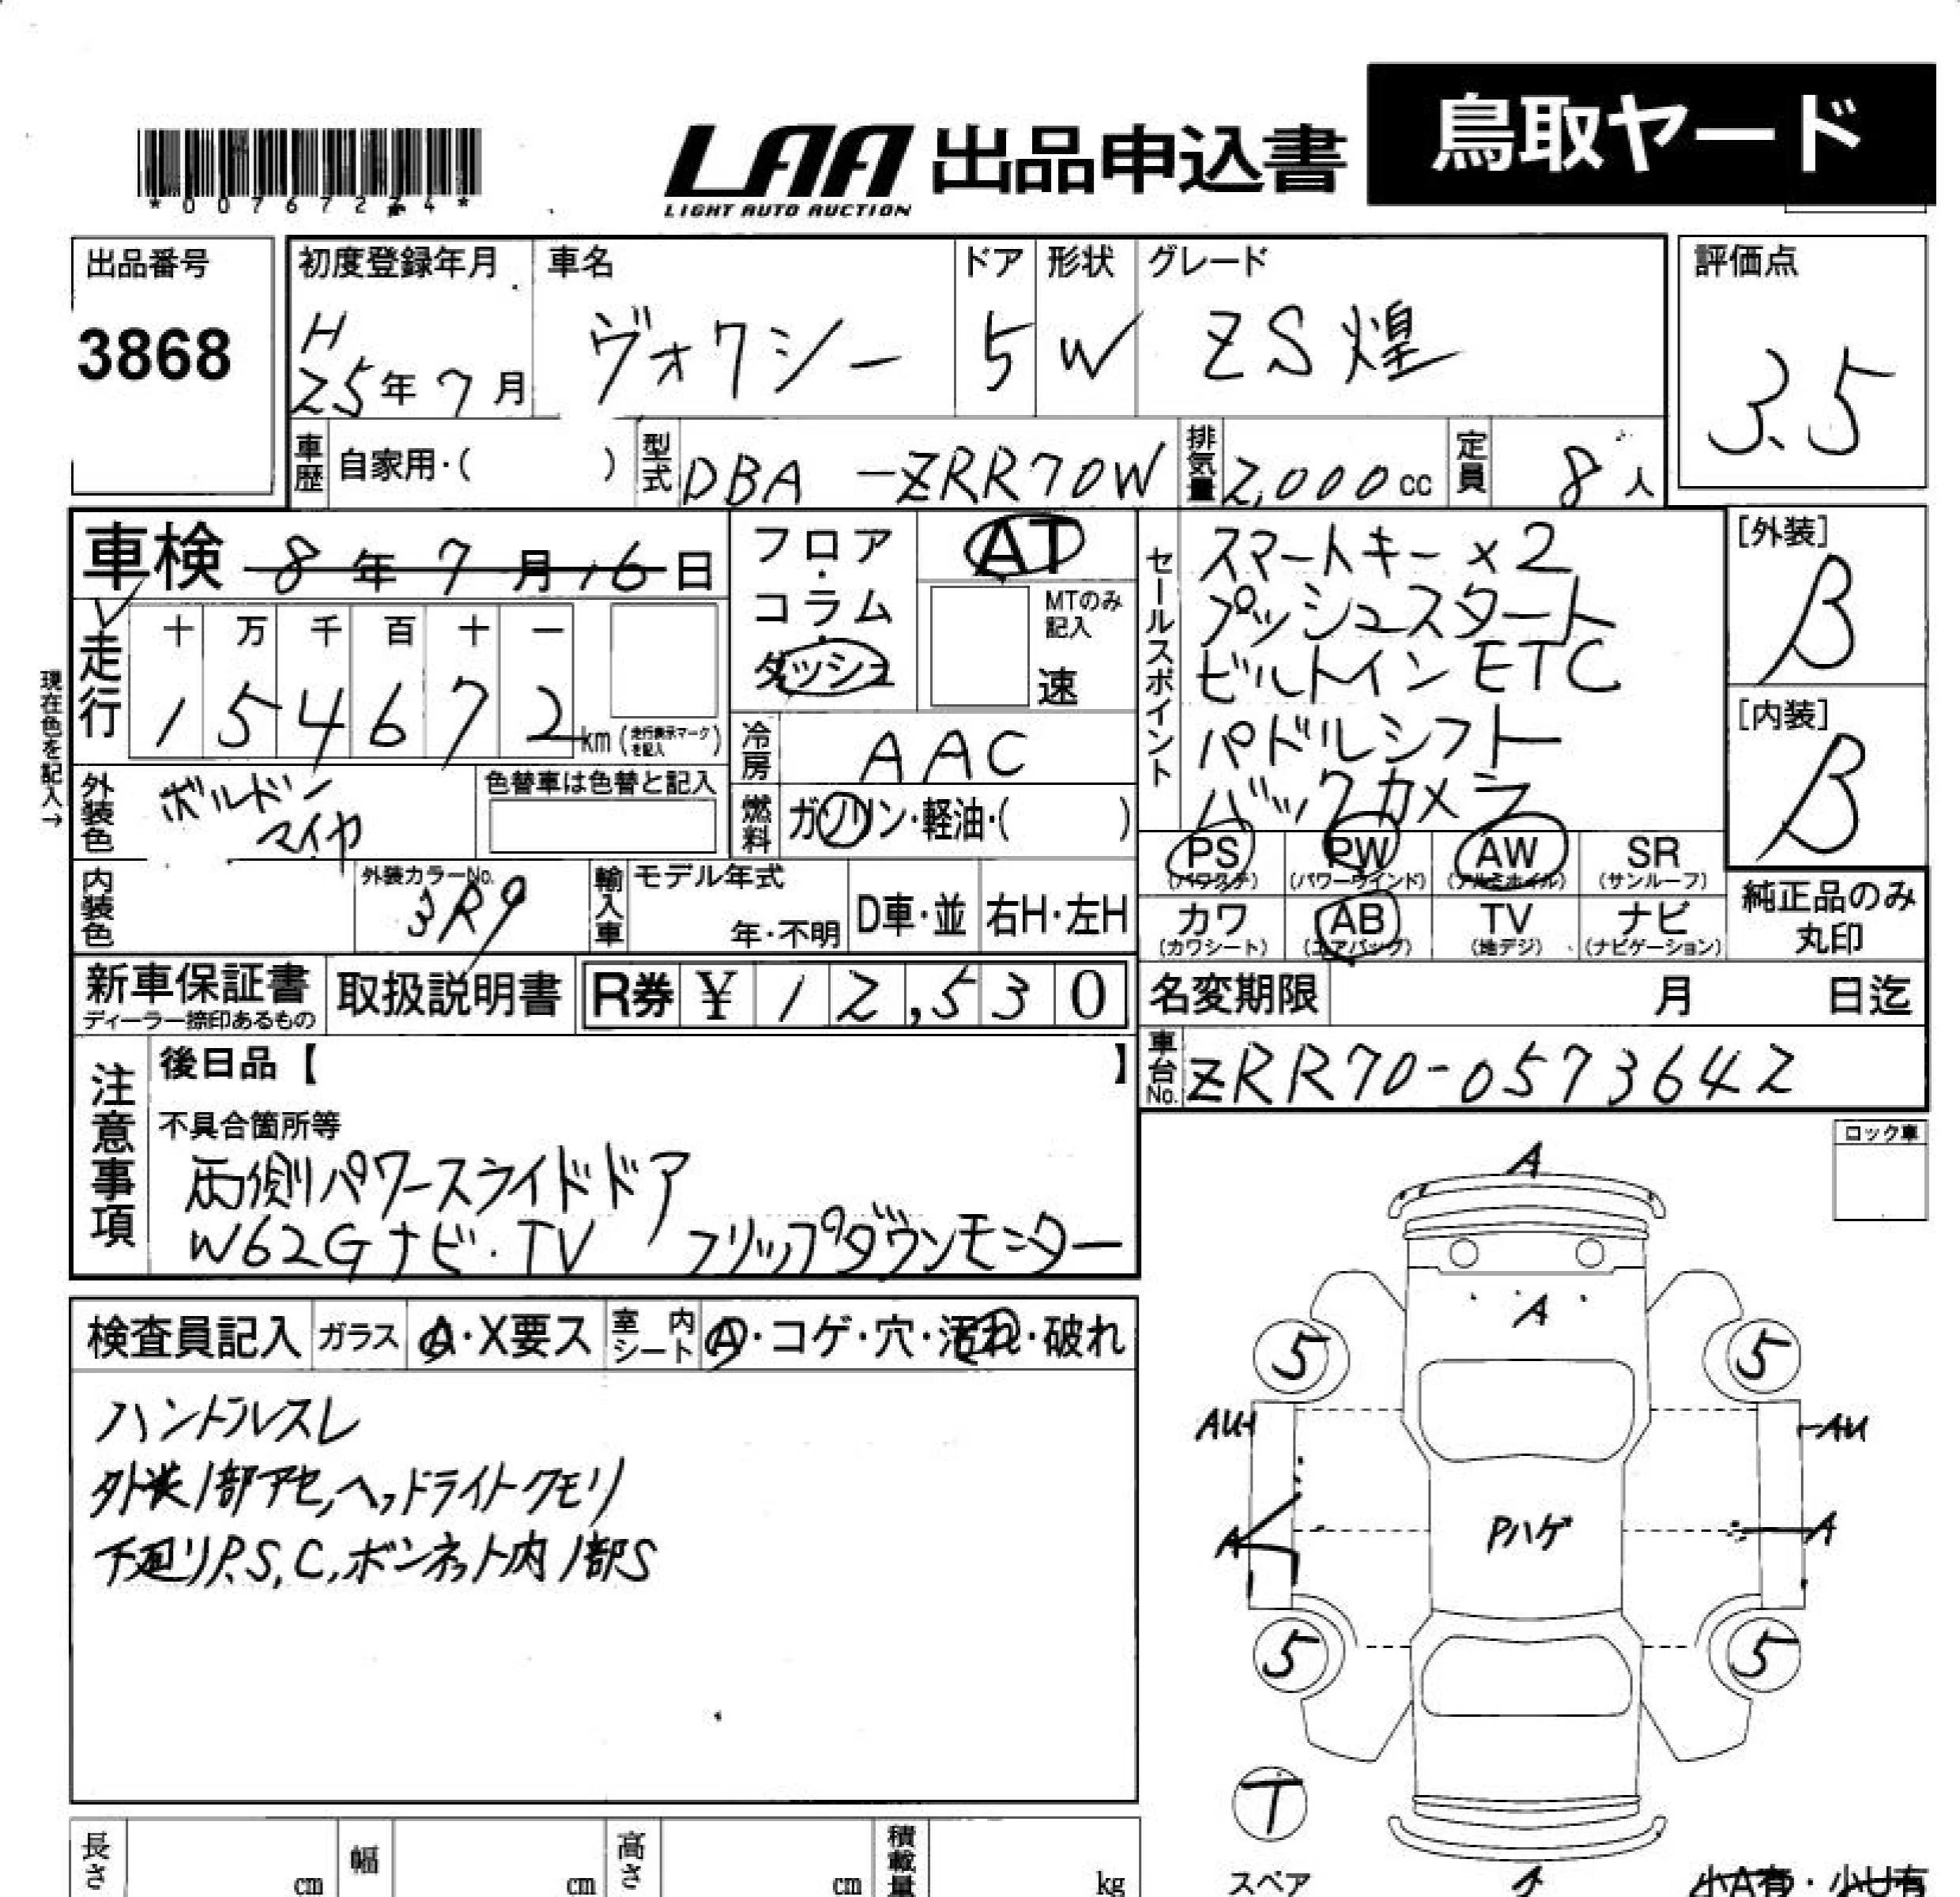 *00767274*
LAA 出品申込書 鳥取ヤード
LIGHT AUTO AUCTION
出品番号 初度登録年月 車名 ドア 形状 グレード 評価点
3868 H 25年7月 ヴォクシー 5 W ZS煌 3.5
車歴 自家用・( ) 型式 DBA-ZRR70W 排気量 2,000cc 定員 8人
車検 8年7月16日
フロア・コラム・ダッシュ AT
MTのみ記入 速
セールスポイント
スマートキー×2
プッシュスタート
ビルトインETC
パドルシフト
バックカメラ
[外装] B
[内装] B
現在色を記入→
走行 十 万 千 百 十 一
1 5 4 6 7 2 km (走行表示マークを記入)
冷房 AAC
外装色 ボルドーマイカ 色替車は色替と記入
燃料 ガソリン・軽油・( )
PS (パワステ) PW (パワーウインド) AW (アルミホイル) SR (サンルーフ)
カワ (カワシート) AB (エアバッグ) TV (地デジ) ナビ (ナビゲーション)
純正品のみ丸印
内装色 外装カラーNo. 3R9 輸入車 モデル年式 年・不明 D車・並 右H・左H
新車保証書 ディーラー捺印あるもの 取扱説明書 R券 ¥ 12,530
名変期限 月 日迄
車台No. ZRR70-0573642
注意事項 後日品【 】
不具合箇所等
両側パワースライドドア
W62Gナビ・TV フリップダウンモニター
ロック車
検査員記入 ガラス A・X要ス 室内シート A・コゲ・穴・汚れ・破れ
ハンドルスレ
外装1部アセ,ヘッドライトクモリ
下廻りP.S,C,ボンネット内1部S
A
A
5 5
AU AU
Pハゲ
A A
5 5
T
スペア
小A有・小U有
長さ cm 幅 cm 高さ cm 積載量 kg